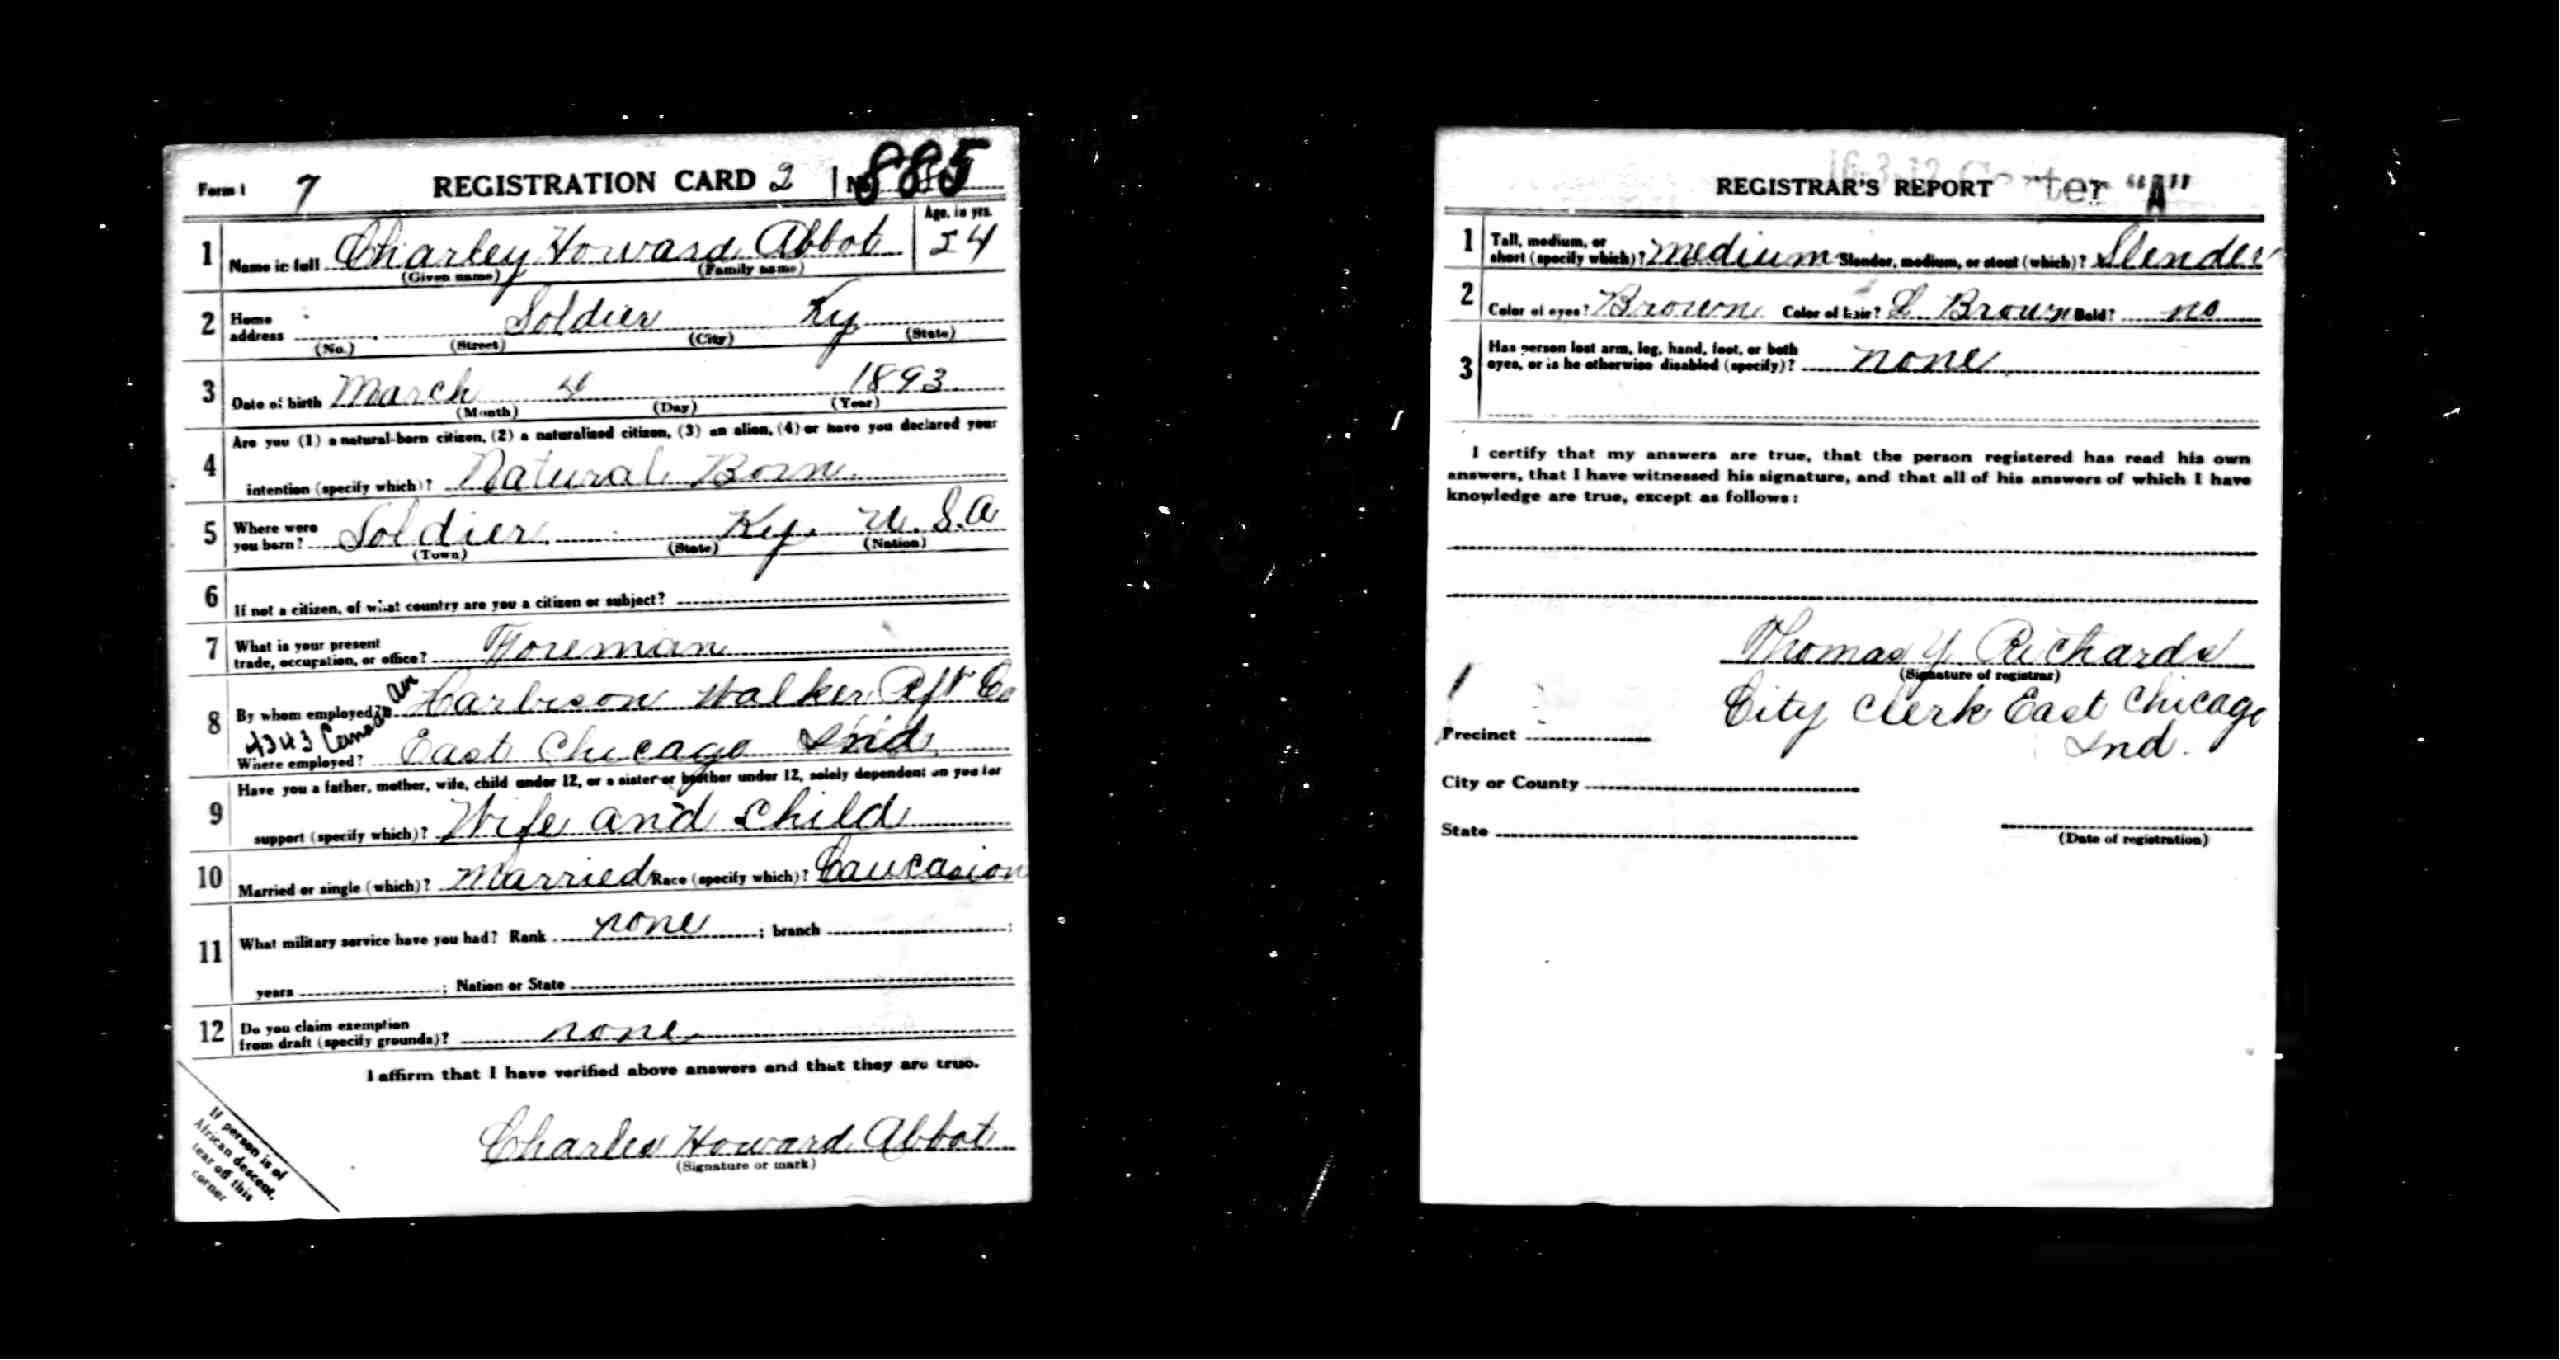 Form 1 7 REGISTRATION CARD 2 No 885
Age, in yrs.
1 Name in full Charley Howard Abbot 24
(Given name) (Family name)
2 Home address Soldier Ky
(No.) (Street) (City) (State)
3 Date of birth March 4 1893
(Month) (Day) (Year)
Are you (1) a natural-born citizen, (2) a naturalized citizen, (3) an alien, (4) or have you declared your
4 intention (specify which)? Natural Born
5 Where were you born? Soldier Ky. U.S.A
(Town) (State) (Nation)
6 If not a citizen, of what country are you a citizen or subject?
7 What is your present trade, occupation, or office? Foreman
8 By whom employed? Harbison Walker Rfr Co
4343
Where employed? East Chicago Ind
Have you a father, mother, wife, child under 12, or a sister or brother under 12, solely dependent on you for
9 support (specify which)? Wife and Child
10 Married or single (which)? Married Race (specify which)? Caucasion
11 What military service have you had? Rank none ; branch ;
years ; Nation or State
12 Do you claim exemption from draft (specify grounds)? none
I affirm that I have verified above answers and that they are true.
Charles Howard Abbot
(Signature or mark)
If person is of
African descent,
tear off this
corner
REGISTRAR'S REPORT "A"
1 Tall, medium, or short (specify which)? medium Slender, medium, or stout (which)? Slender
2 Color of eyes? Brown Color of hair? L Brown Bald? no
3 Has person lost arm, leg, hand, foot, or both
eyes, or is he otherwise disabled (specify)? none
I certify that my answers are true, that the person registered has read his own
answers, that I have witnessed his signature, and that all of his answers of which I have
knowledge are true, except as follows:
Thomas Y Richards
(Signature of registrar)
City Clerk East Chicago
Ind.
Precinct
City or County
State
(Date of registration)